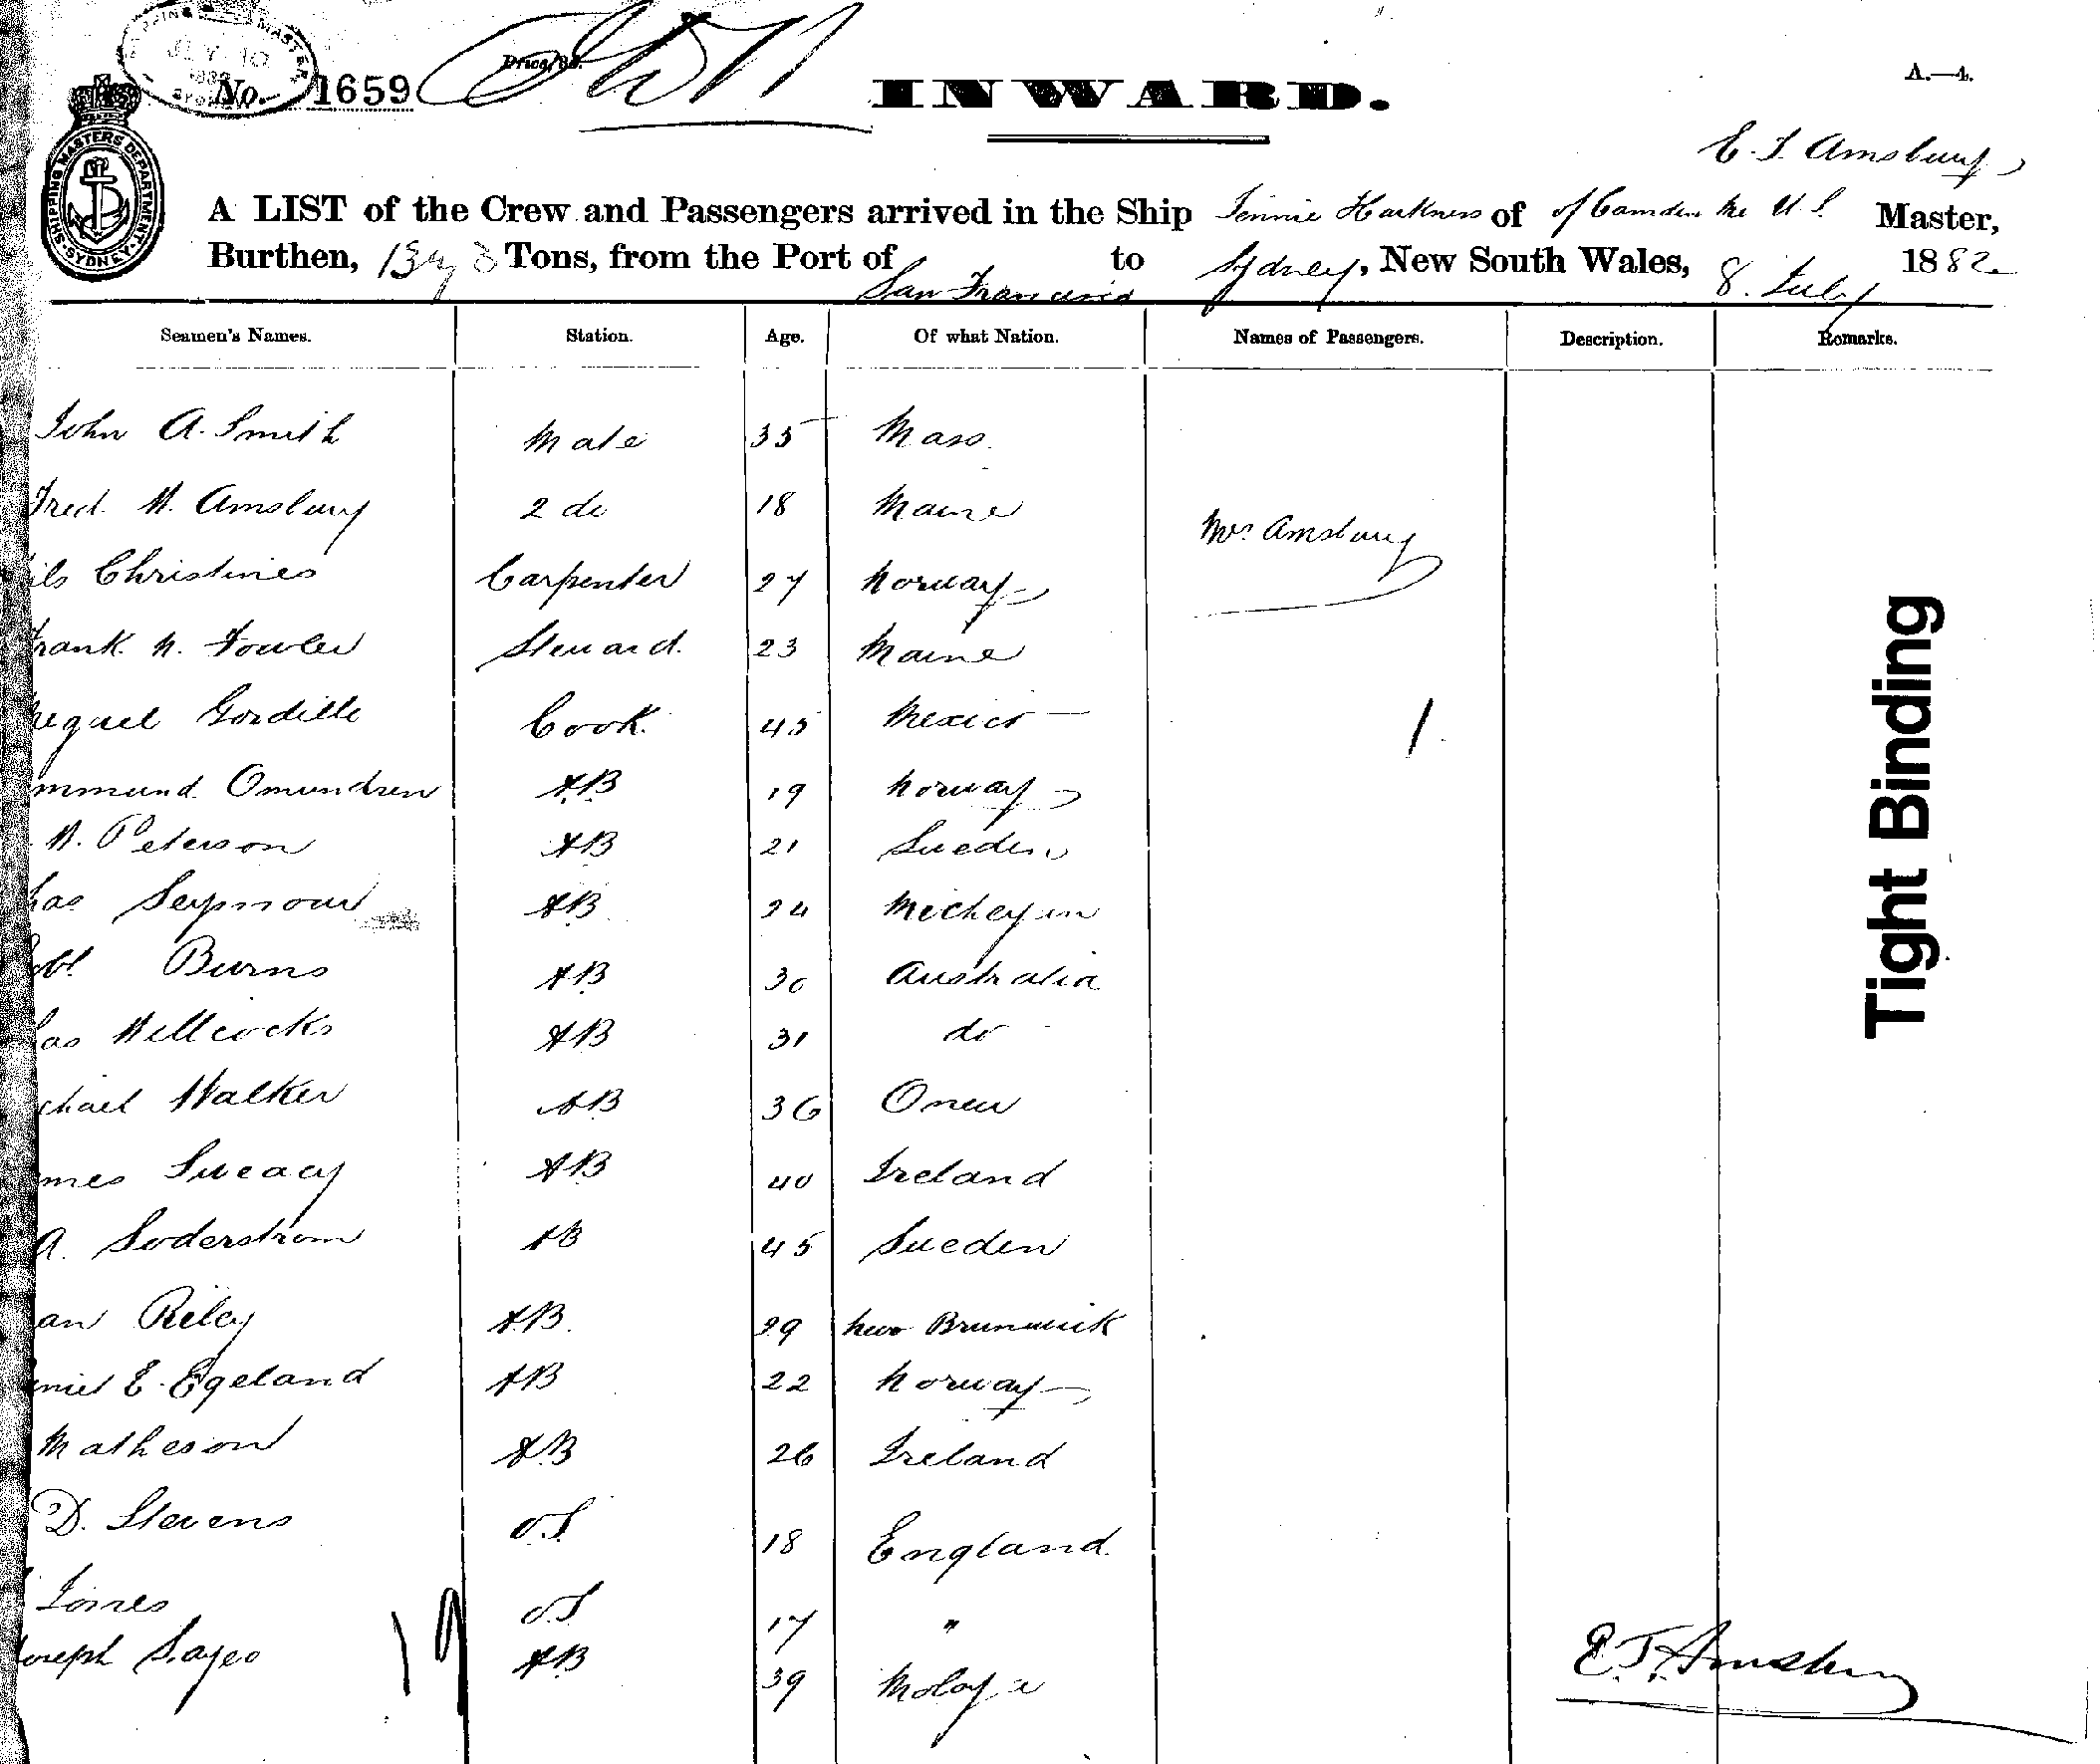 SHIPPING MASTER
SYDNEY
No. 1659
INWARD.
A.—4.
SHIPPING MASTERS DEPARTMENT
SYDNEY
E. T. Amsbury
A LIST of the Crew and Passengers arrived in the Ship Jennie Harkness of of Camden Me U.S. Master,
Burthen, Tons, from the Port of San Francisco to Sydney, New South Wales, 8. July 1882
Seamen's Names. Station. Age. Of what Nation. Names of Passengers. Description. Remarks.
John A. Smith Mate 35 Mass.
Fred. W. Amsbury 2 do 18 Maine
Mrs. Amsbury
ils Christines Carpenter 27 Norway
rank. N. Fowler Steward. 23 Maine
Gordille Cook. 45 Mexico 1
mmund Omundsen AB 19 Norway
W. Peterson AB 21 Sweden
has Seymour AB 24 Micheyan
obt Burns AB 30 Australia
has Willcocks AB 31 do
chael Walker AB 36
mes Sweacy AB 40 Ireland
A. Soderstrom AB 45 Sweden
an Riley AB. 29 New Brunswick
aniel E. Egeland AB 22 Norway
Matheson AB 26 Ireland
D. Stevens O.S 18 England.
Jones O.S 17 "
Joseph AB 39
19
E.T. Amsbury
Tight Binding